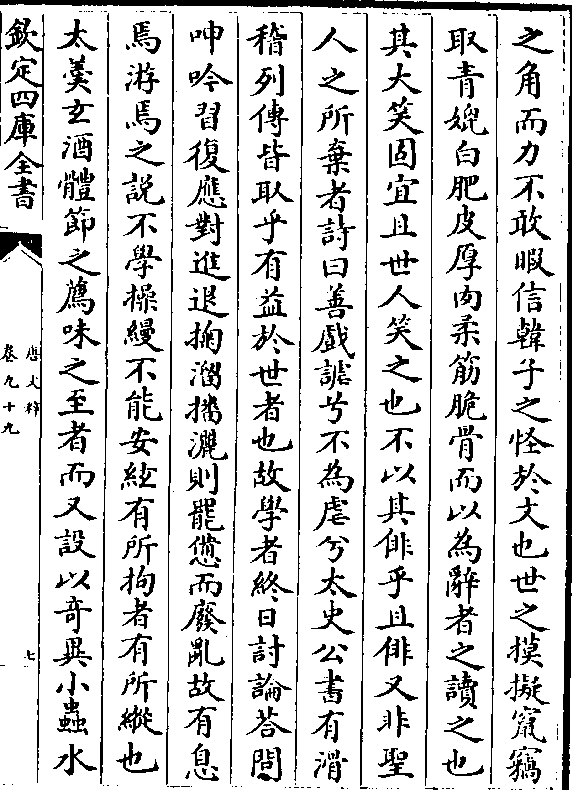 之角而力不敢暇信韓子之怪於文也世之摸擬竄竊
取青媲白肥皮厚肉柔筋脆骨而以為辭者之讀之也
其大笑固宜且世人笑之也不以其俳乎且俳又非聖
人之所棄者詩曰善戲謔兮不為虐兮太史公書有滑
稽列傳皆取乎有益於世者也故學者終日討論荅問
呻吟習復應對進退掬溜播灑則罷憊而廢亂故有息
焉游焉之說不學操縵不能安絃有所拘者有所縱也
太羹玄酒體節之薦味之至者而又設以奇異小蟲水
欽定四庫全書
唐文粹
卷九十九
七